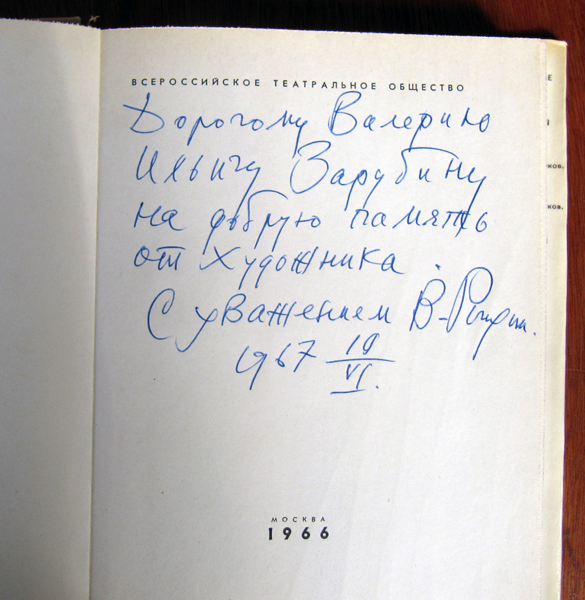 ВСЕРОССИЙСКОЕ ТЕАТРАЛЬНОЕ ОБЩЕСТВО
Дорогому Валерию
Ильичу Зарубину
на добрую память
от художника.
С уважением В.
1967 10
VI.
МОСКВА
1966